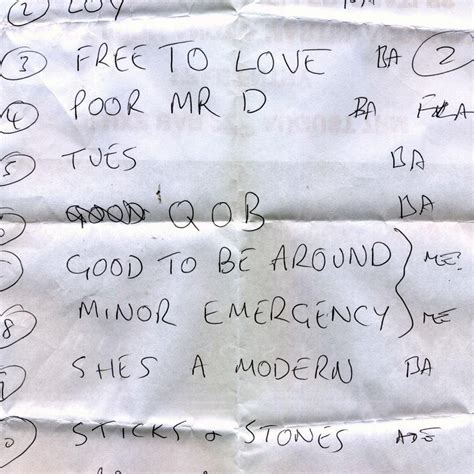 ② LOV
③ FREE TO LOVE BA ②
④ POOR MR D BA A
5 TUES BA
QOB BA
GOOD TO BE AROUND ME?
8 MINOR EMERGENCY ME
SHES A MODERN BA
STICKS & STONES ADE